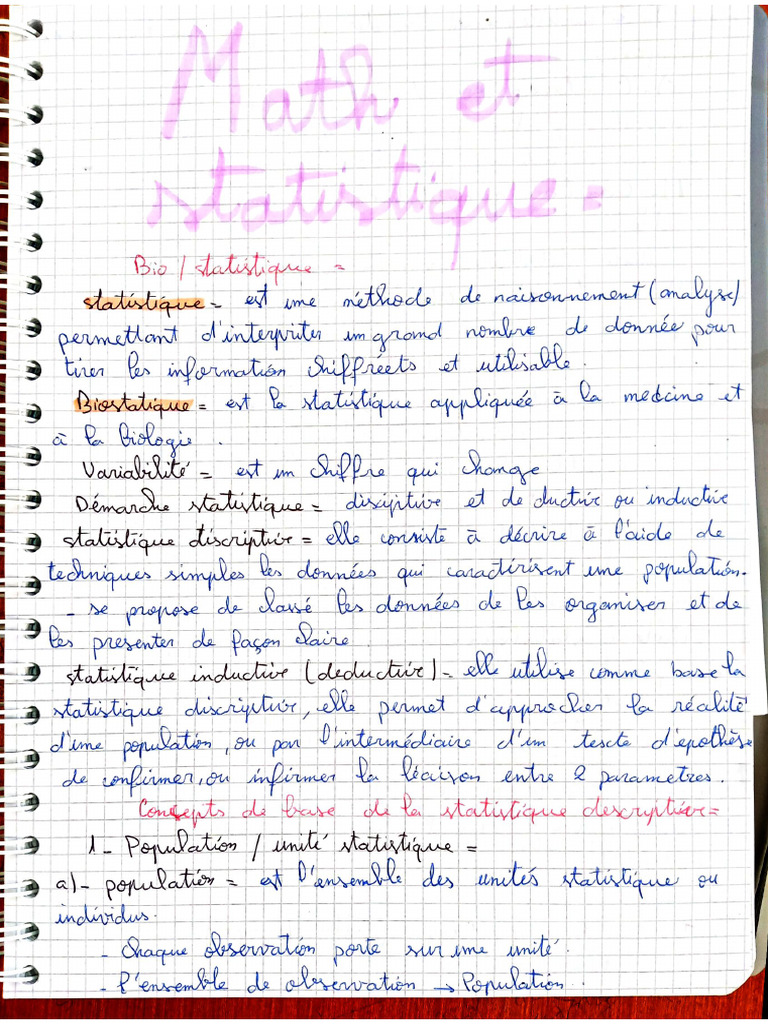 Math et
statistique =
Bio / statistique =
statistique = est une méthode de raisonnement (analyse)
permettant d'interpriter un grand nombre de donnée pour
tirer les information chiffréets et utilisable.
Biostatique = est la statistique appliquée à la medcine et
à la biologie.
Variabilité = est un chiffre qui change
Démarche statistique = disciptive et de ductive ou inductive
statistique discriptive = elle consiste à décrire à l'aide de
techniques simples les données qui caractérisent une population.
- se propose de classé les données de les organiser et de
les presenter de façon claire.
statistique inductive (deductive) = elle utilise comme base la
statistique discriptive, elle permet d'approcher la réalité
d'une population, ou par l'intermédiaire d'un tescte d'epothèse
de confirmer, ou infirmer la liaison entre 2 parametres.
Concepts de base de la statistique descriptive =
1 - Population / unité statistique =
a) - population = est l'ensemble des unités statistique ou
individus.
- chaque observation porte sur une unité.
- l'ensemble de observation → Population.